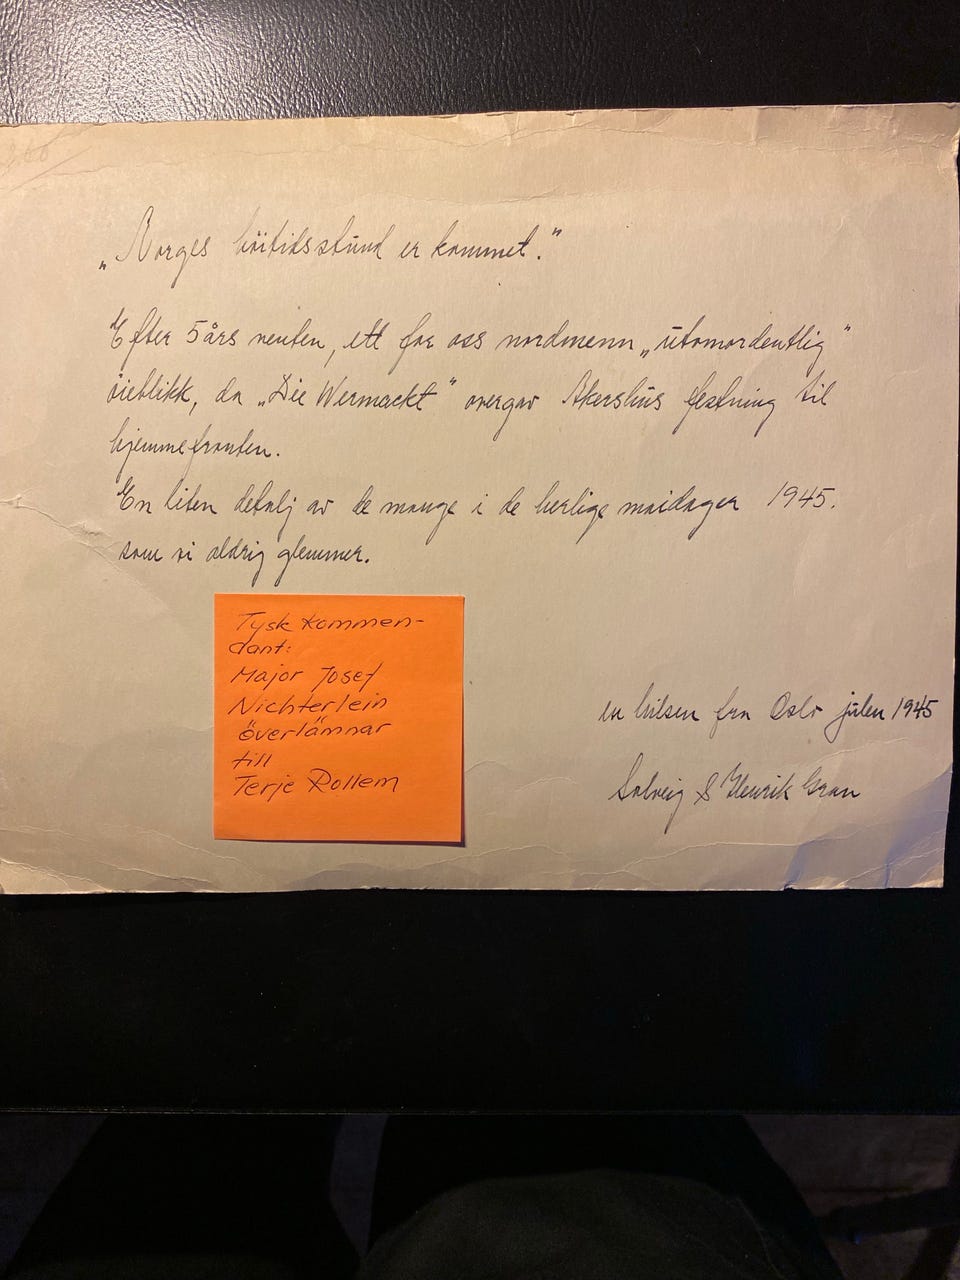 „Norges höitidsstund er kommet.”
Efter 5 års venten, ett for oss nordmenn „utomordentlig”
öieblikk, da „Die Wermackt” overgav Akershus festning til
hjemmefronten.
En liten detalj av de mange i de herlige maidager 1945.
som vi aldrig glemmer.
Tysk Kommen-
dant:
Major Josef
Nichterlein
överlämnar
till
Terje Rollem
en hilsen fra Oslo julen 1945
Solveig & Henrik Gran